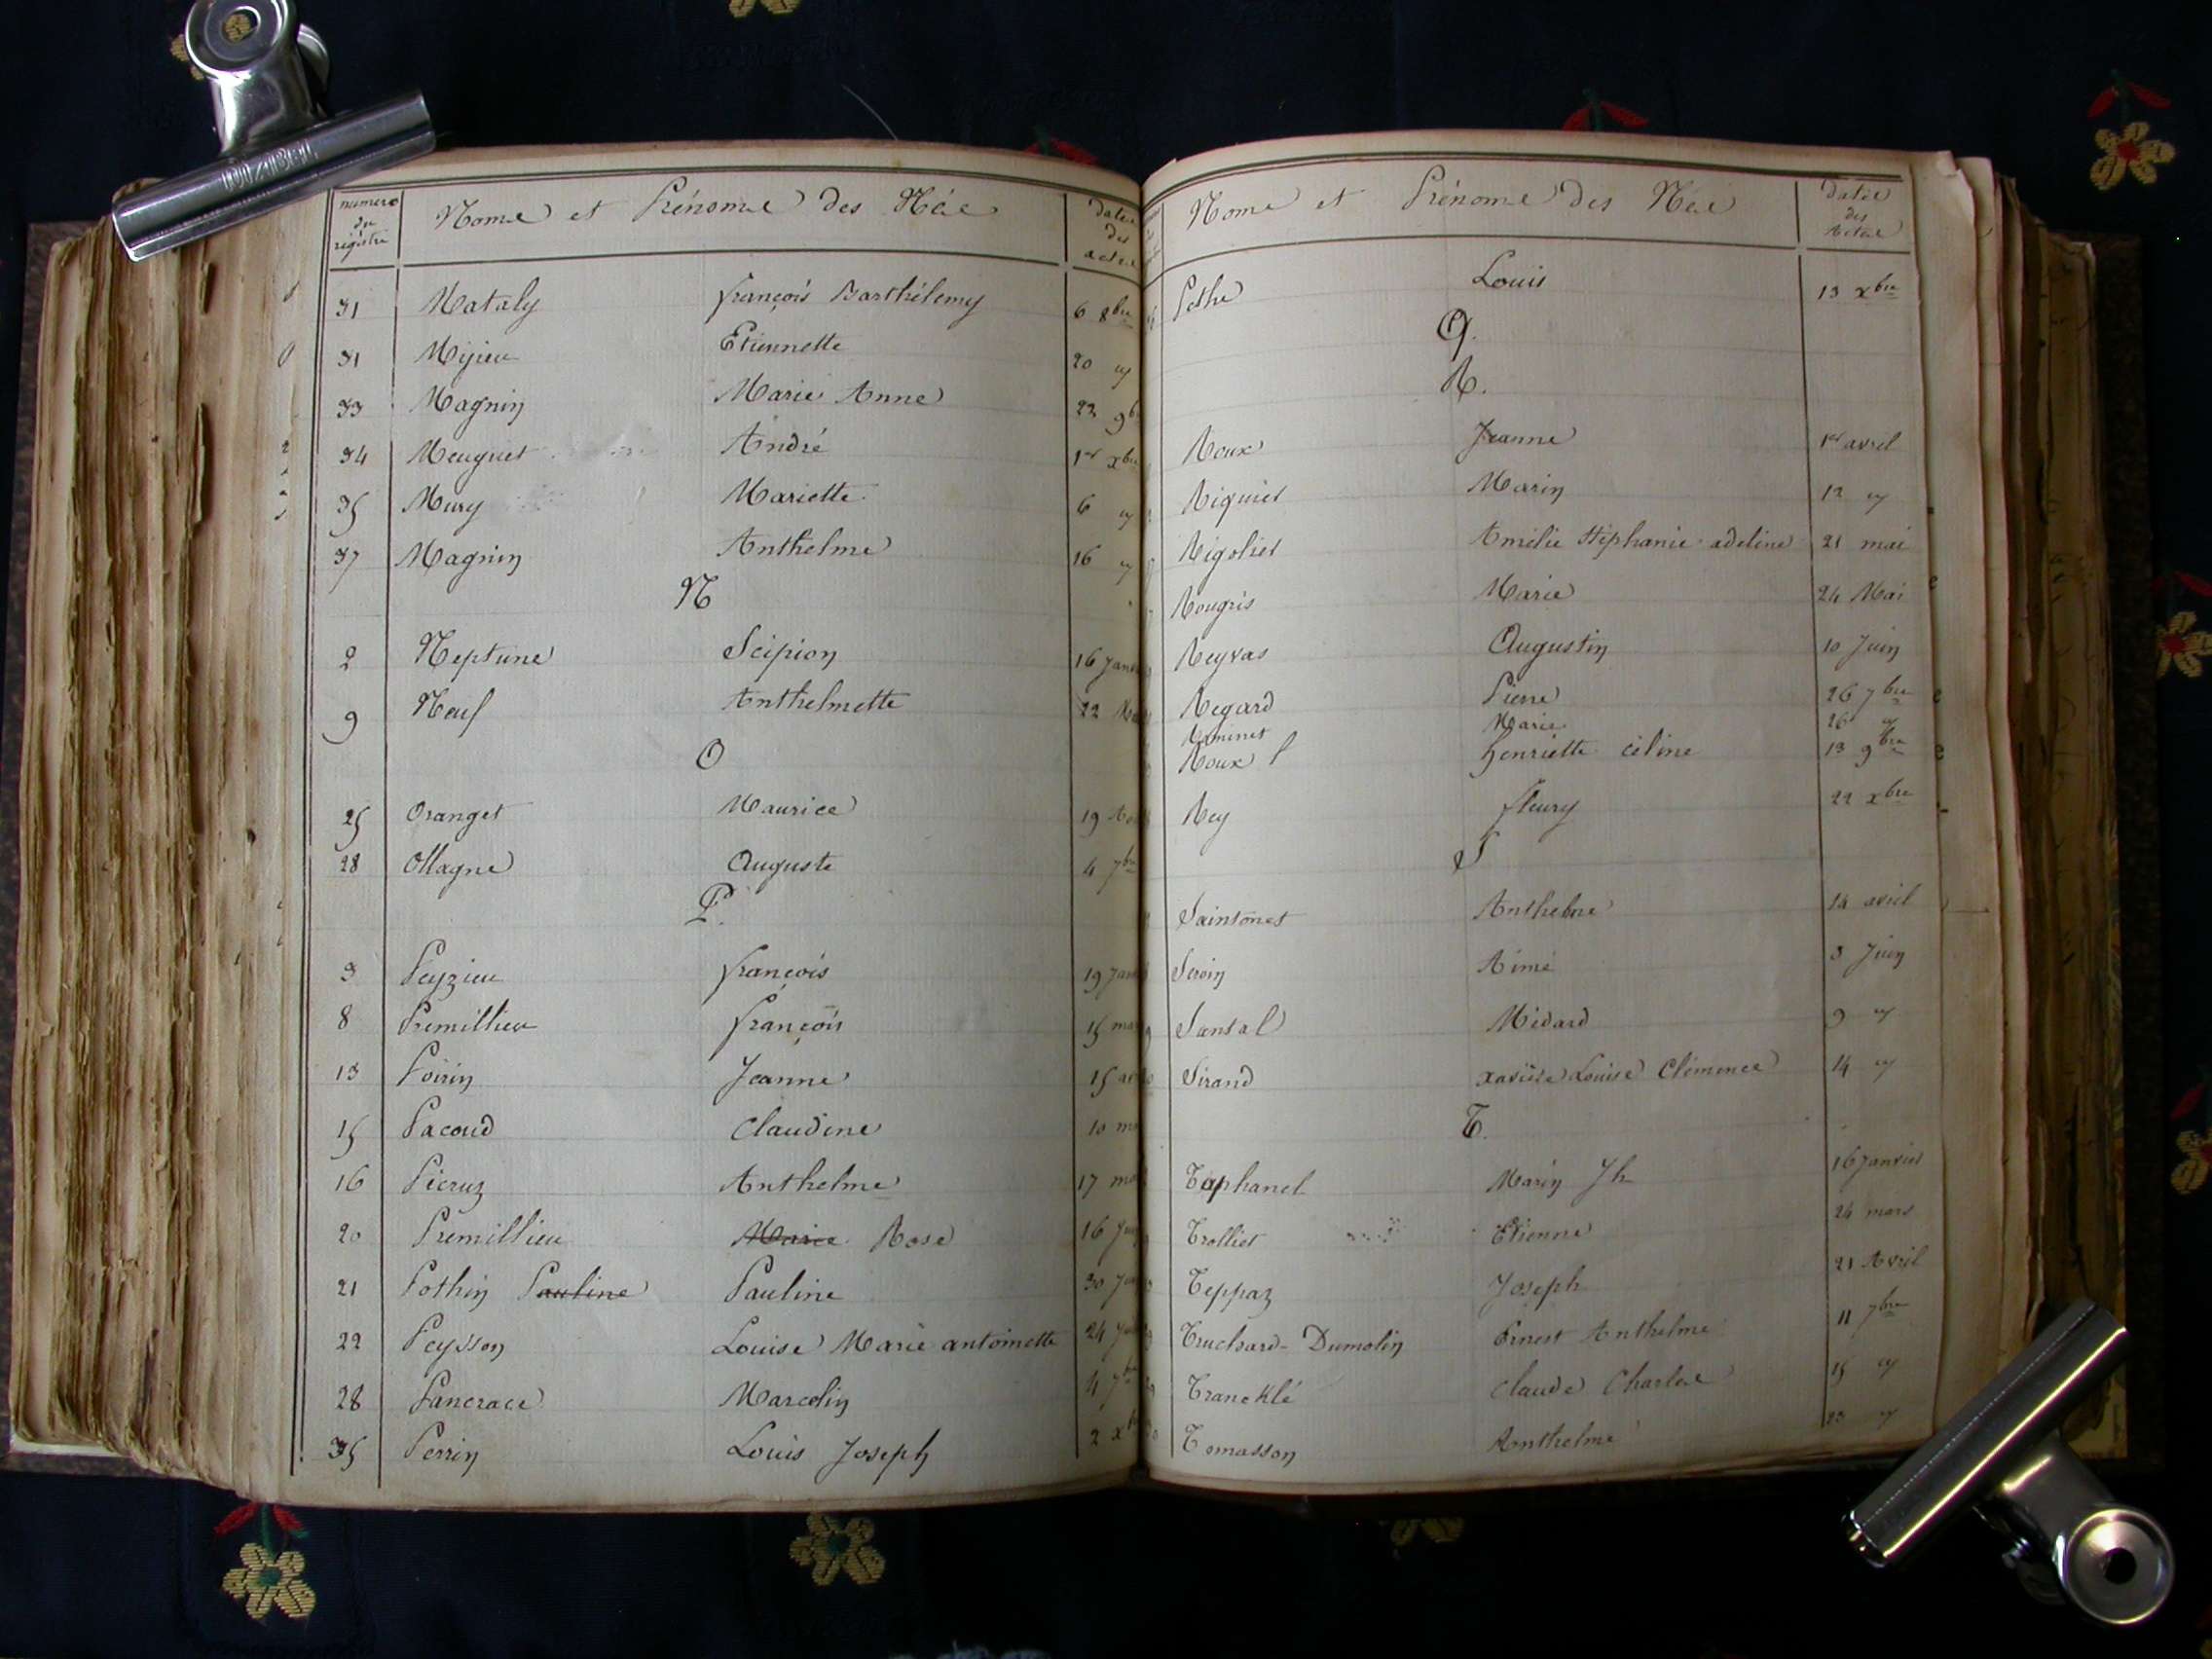 numero
du
registre
Noms et Prénoms des Nés
dates
des
actes
31 Mataly françois Barthélemy 6 8bre
31 Mijieu Etiennette 20 cy
33 Magnin Marie Anne 22 9b
34 Meugniet André 1er xbre
35 Mury Mariette 6 cy
37 Magnin Anthelme 16 cy
N
2 Neptune Scipion 16 Janv
9 Neuf Anthelmette 22
O
25 Oranget Maurice 19
28 Ollagne Auguste 4 7bre
P.
3 Peyzieu françois 19 Janv
8 Premillieu françois 15 mar
13 Poirin Jeanne 15 av
15 Pacoud Claudine 10 m
16 Picruz Anthelme 17 ma
20 Premillieu Marie Rose 16 Ju
21 Pothin Pauline Pauline 30 Ju
22 Peysson Louise Marie antoinette 24 Ju
28 Pancrace Marcelin 4 7bre
35 Perrin Louis Joseph 2 xb
Noms et Prénoms des Nés
dates
des
Actes
Pothe Louis 13 xbre
Q.
R.
Roux Jeanne 1er avril
Riquier Marin 12 cy
Rigolier Amélie Stéphanie adeline 21 mai
Rougris Marie 24 Mai
Reyvas Augustin 10 Juin
Regard Pierre 26 7bre
Marie 26 cy
Roux henriette céline 13 9bre
Rey fleury 22 xbre
S
Saintonet Anthelme 14 avril
Seroin Aimé 3 Juin
Santal Médard 9 cy
Sirand xavière Louise Clémence 14 cy
T.
Taphanel Marin Jh 16 Janvier
Trolliet Etienne 24 mars
Teppaz Joseph 21 Avril
Truchard-Dumolin Ernest Anthelme 11 7bre
Tranchlé Claude Charles 15 cy
Tomasson Anthelme 23 cy